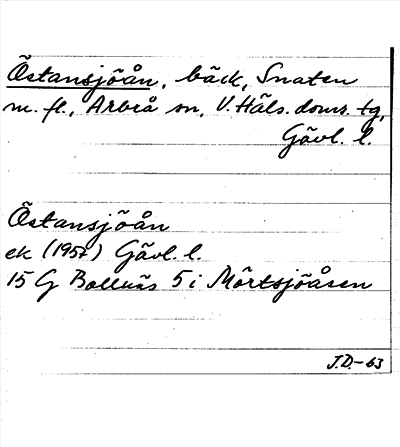 Östansjöån, bäck, Snaten
m. fl., Arbrå sn, V. Häls. doms. tg,
Gävl. l.
Östansjöån
ek (1957) Gävl. l.
15 G Bollnäs 5 i Mörtsjöåsen
J.D.-63